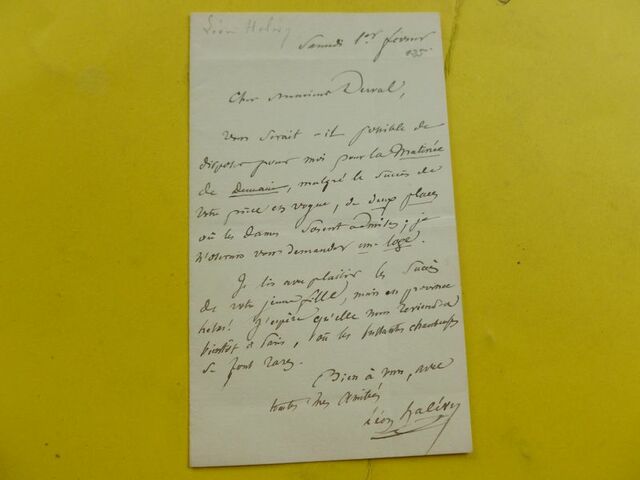 Léon Halévy
Samedi 1er février
Cher Monsieur Duval,
Vous serait-il possible de
disposer pour moi pour la Matinée
de Demain, malgré le succès de
votre pièce en vogue, de deux places
où les dames soient admises; je
n'oserais vous demander une loge.
Je lis avec plaisir les succès
de votre jeune fille, mais en province
helas! J'espère qu'elle nous reviendra
bientôt à Paris, où les brillantes chanteuses
se font rares.
Bien à vous, avec
toutes mes amitiés
Léon Halévy